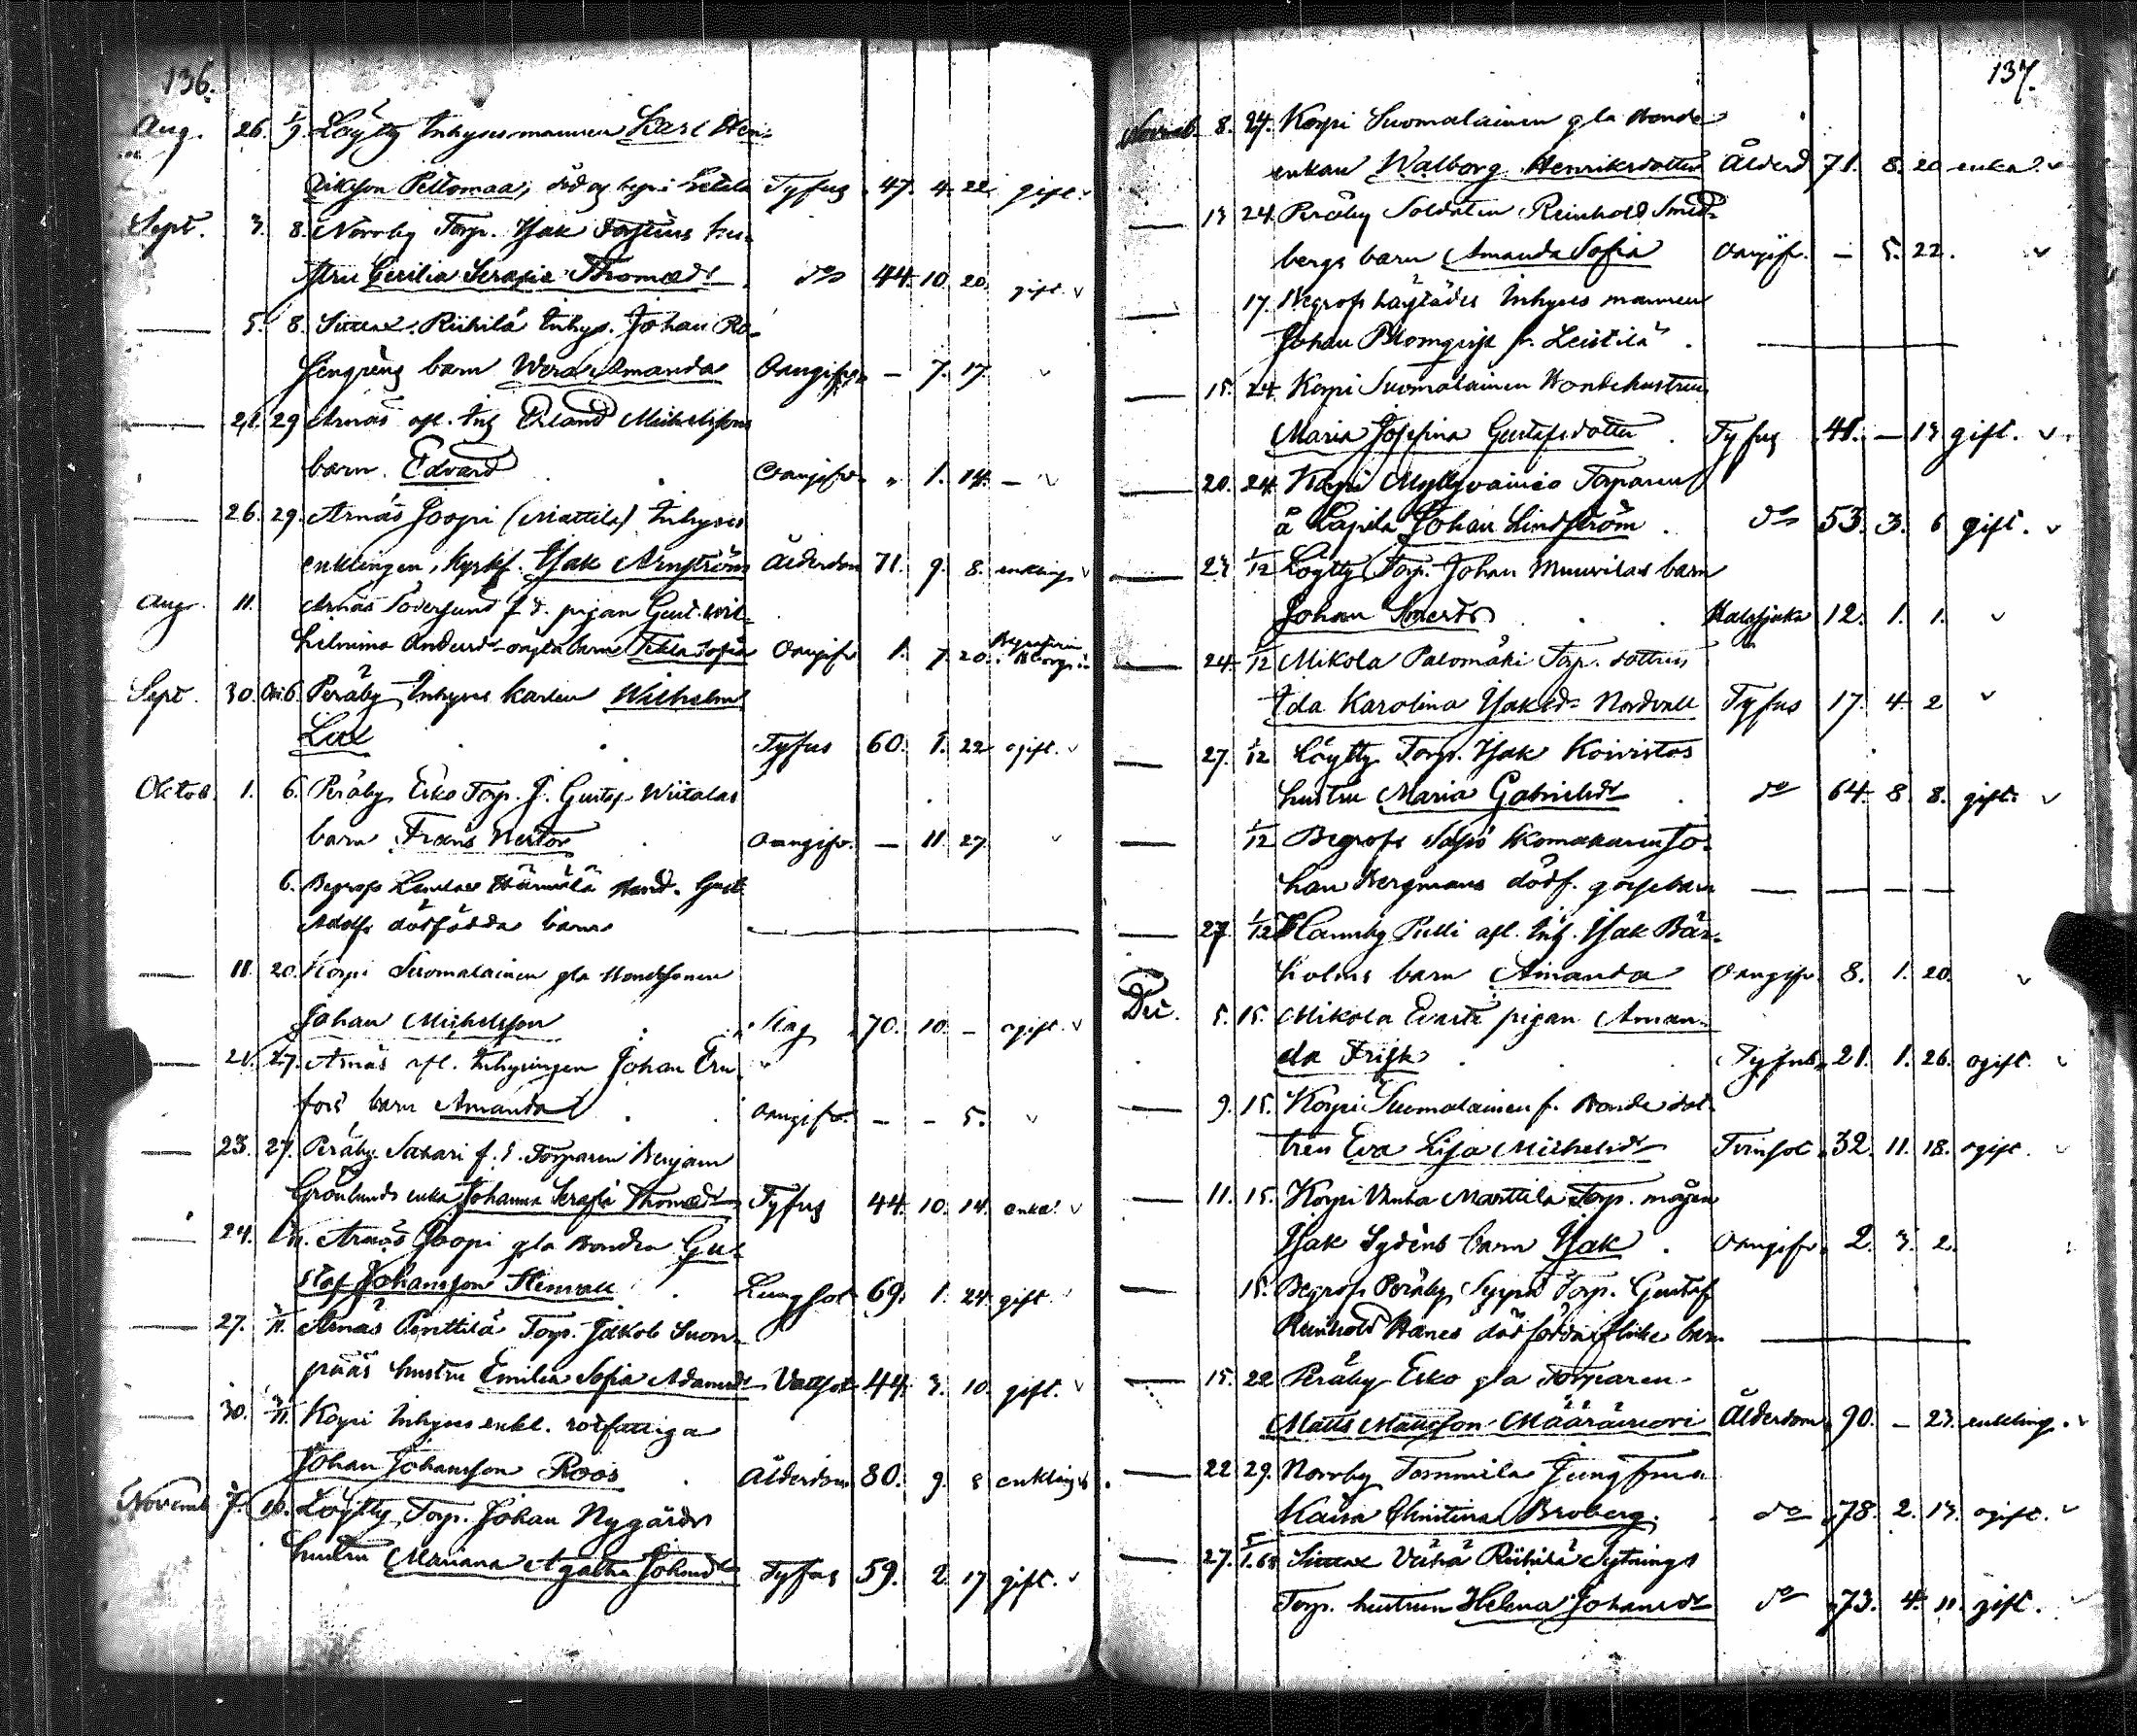 136.
Aug. 26. 1/9. Löytty Inhysesmannen Karl Hen-
rikson Peltomaa, död og begr. i Letala Tyfus 47. 4. 22. gift.
Sept. 3. 8. Norrby Torp. Isak Forsteus hu-
stru Cecilia Serafia Thomasdr do 44. 10. 20. gift.
— 5. 8. Riihilä Inhys. Johan Ro-
sengrens barn Wera Amanda Oangifv. — 7. 17.
— 21. 29 Arnäs afl. Inh. Erland Michelssons
barn Edvard Oangifv. " 1. 14. —
— 26. 29. Arnäs Joopi (Mattila) Inhyses
enklingen, Kyrkf. Isak Arnström Ålderdom 71. 9. 8. enkling
Aug. 11. Arnäs Södersund f.d. pigan Gust. Wil-
helmina Andersdr oägta barn Tekla Sofia Oangifv 1. 7. 20.
Sept. 30. Okt. 6. Peräby Inhyses karlen Wilhelm
Lux Tyfus 60. 1. 22 ogift.
Oktob. 1. 6. Peräby Erko Torp. J. Gustaf Wiitalas
barn Frans Nestor Oangifv. — 11. 27.
6. Begrofs Hännilä Bond. Gust.
Adolfs dödfödda barn —
— 11. 20. Korpi Suomalainen gla Bondesonen
Johan Michelsson Slag 70. 10. — ogift.
— 21. 27. Arnäs afl. Inhysingen Johan Ern-
fors barn Amanda Oangifv. — — 5.
— 23. 27. Peräby Sakari f.d. Torparen Benjam
Grönlunds enka Johanna Serafia Thomasdr Tyfus 44. 10. 14. enka.
— 24. 1/11. Arnäs Joopi gla Bonden Gu-
staf Johansson Stenvall Lungsot 69. 1. 24 gift.
— 27. 3/11. Arnäs Penttilä Torp. Jakob Suon-
pääs hustru Emilia Sofia Adamsdr Vattsot 44. 3. 10. gift.
— 30. 3/11. Korpi Inhyses enkl. rotfattiga
Johan Johansson Roos Ålderdom 80. 9. 8 enkling
Novemb 7. 10. Löytty Torp. Johan Nygårds
hustru Mariana Agatha Johansdr Tyfus 59. 2. 17 gift.
137.
Novemb. 8. 24. Korpi Suomalainen gla Bonde
enkan Walborg Henriksdotter Ålderd 71. 8. 20 enka.
— 13 24. Peräby Soldaten Reinhold Smed-
bergs barn Amanda Sofia Oangifv. — 5. 22.
— 17. Begrofs Inhyses mannen
Johan Blomqvist fr. Leistilä. —
— 15. 24. Korpi Suomalainen Bondehustrun
Maria Josefina Gustafsdotter Tyfus 41. — 13 gift.
— 20. 24. Korpi Myllyvainio Torparen
å Lapila Johan Lindström do 53. 3. 6 gift.
— 23 1/12 Löytty Torp. Johan Muurilas barn
Johan Smerts Halssjuka 12. 1. 1.
— 24. 1/12 Mikola Palomäki Torp. dottren
Ida Karolina Isaksdr Nordvall Tyfus 17. 4. 2
— 27. 1/12 Löytty Torp. Isak Koivistos
hustru Maria Gabrielsdr do 64. 8. 8. gift.
— 1/12 Begrofs Skomakaren Jo-
han Bergmans dödf. gossebarn — — — —
— 27. 1/12 Hannby Pelli afl. Inh. Isak Bär-
holms barn Amanda Oangifv. 8. 1. 20.
Dec. 5. 15. Mikola pigan Aman-
da Frisk Tyfus 21. 1. 26. ogift.
— 9. 15. Korpi Suomalainen f. Bonde dot-
tren Eva Lisa Michelsdr Tvinsot 32. 11. 18. ogift.
— 11. 15. Korpi Vanha Marttila Torp. mågen
Isak Sydens barn Isak Oangifv. 2. 3. 2.
— 15. Begrofs Peräby Seppä Torp. Gustaf
Reinhold Hanes dödfödda flicke barn —
— 15. 22 Peräby Erko gla Torparen
Matts Mattsson Määränvori Ålderdom 90. — 23. enkling.
— 22 29. Norrby Tommila Jungfrun
Kaisa Christina Broberg do 78. 2. 13. ogift.
— 27. 5/1.68 Vähä Riihilä Sytnings
Torp. hustrun Helena Johansdr do 73. 4. 11. gift.